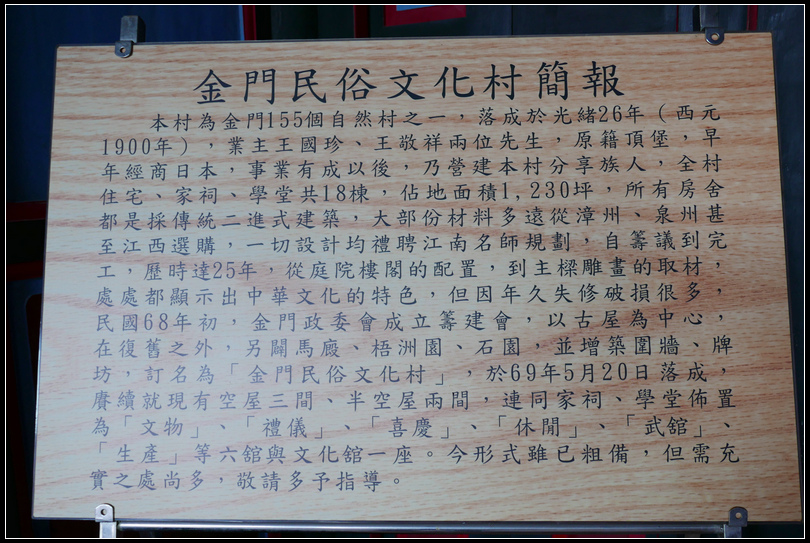 金門民俗文化村簡報
本村為金門155個自然村之一，落成於光緒26年（西元
1900年），業主王國珍、王敬祥兩位先生，原籍頂堡，早
年經商日本，事業有成以後，乃營建本村分享族人，全村
住宅、家祠、學堂共18棟，佔地面積1,230坪，所有房舍
都是採傳統二進式建築，大部份材料多遠從漳州、泉州甚
至江西選購，一切設計均禮聘江南名師規劃，自籌議到完
工，歷時達25年，從庭院樓閣的配置，到主樑雕畫的取材，
處處都顯示出中華文化的特色，但因年久失修破損很多，
民國68年初，金門政委會成立籌建會，以古屋為中心，
在復舊之外，另闢馬廄、梧洲園、石園，並增築圍牆、牌
坊，訂名為「金門民俗文化村」，於69年5月20日落成，
賡續就現有空屋三間、半空屋兩間，連同家祠、學堂佈置
為「文物」、「禮儀」、「喜慶」、「休閒」、「武舘」、
「生產」等六舘與文化舘一座。今形式雖已粗備，但需充
實之處尚多，敬請多予指導。